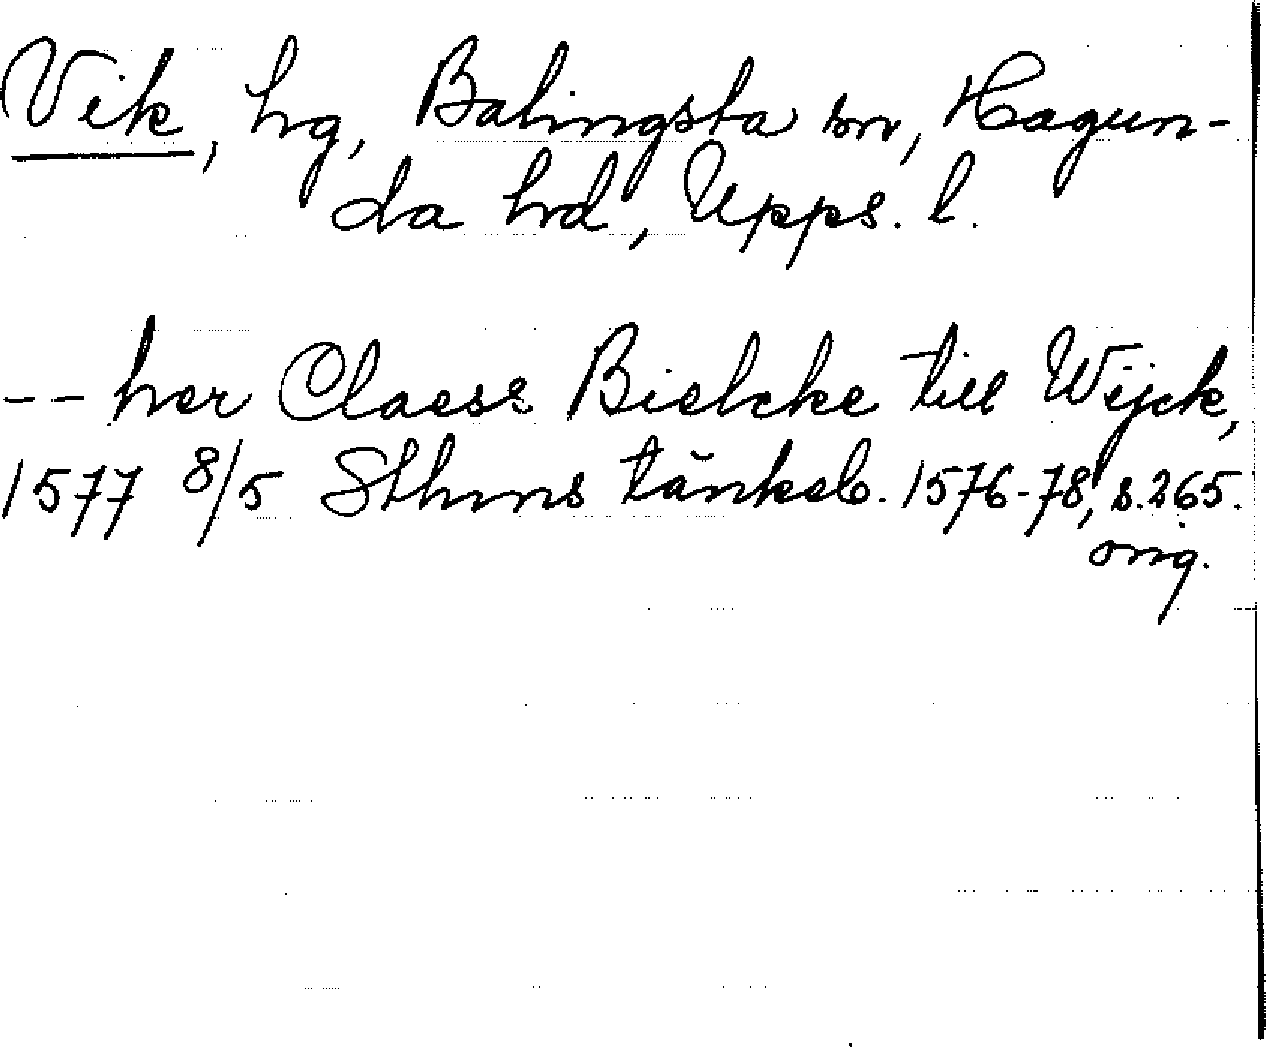 Vik, hg, Balingsta sn, Hagun-
da hrd, Upps. l.
-- her Claess Bielcke till Wijck,
1577 8/5 Sthms tänkeb. 1576-78, s. 265.
orig.